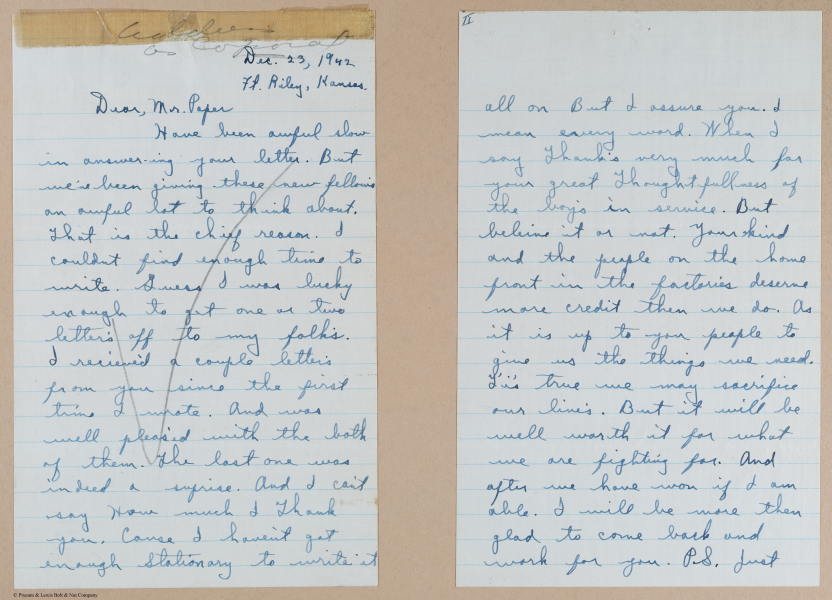 Address
as Corporal
Dec. 23, 1942
Ft. Riley, Kansas.
Dear, Mr. Paper
Have been awful slow
in answer-ing your letter. But
we've been giving these new fellows
an awful lot to think about.
That is the chief reason. I
couldnt find enough time to
write. Guess I was lucky
enough to get one or two
letter's off to my folk's.
I recieved a couple letters
from you since the first
time I wrote. And was
well pleased with the both
of them. The last one was
indeed a suprise. And I can't
say How much I Thank
you. Cause I haven't got
enough Stationary to write it
II
all on But I assure you. I
mean every word. When I
say Thank's very much for
your great Thoughtfullness of
the boys in service. But
believe it or not. Your kind
and the people on the home
front in the factories deserve
more credit then we do. As
it is up to you people to
give us the things we need.
It's true we may sacrifice
our lives. But it will be
well worth it for what
we are fighting for. And
after we have won if I am
able. I will be more then
glad to come back and
work for you. P.S. Just
© Pheoum & Lewis Bolt & Nut Company